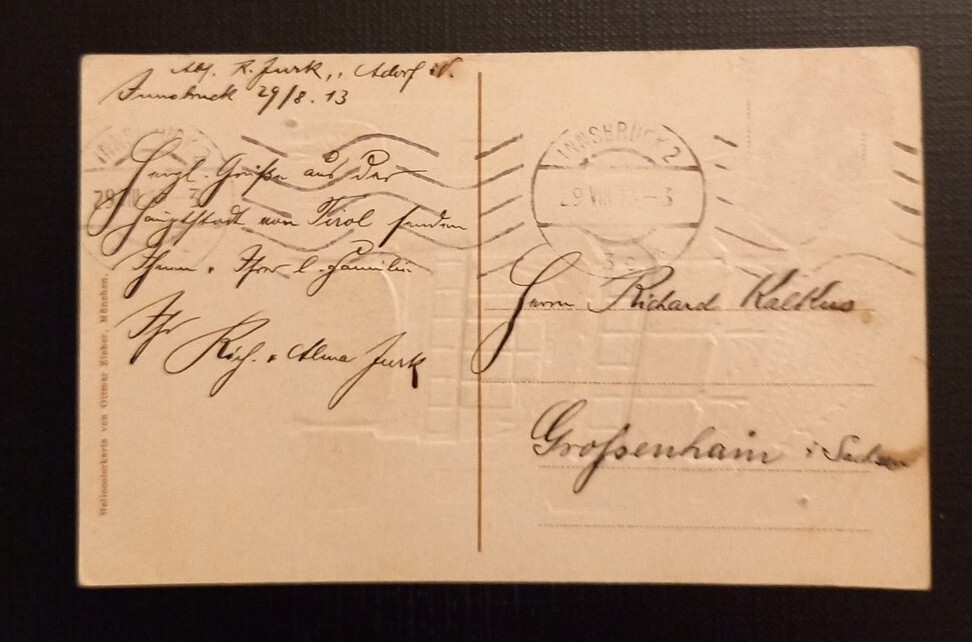 Abs. R. Jurk, Adorf i/V.
Innsbruck 29/8. 13
Herzl. Grüße aus der
Hauptstadt von Tirol senden
Ihnen u. Ihrer l. Familie
Ihr
Rich. u. Alma Jurk
INNSBRUCK 2
29 VIII 13 - 3
* 3 c *
INNSBRUCK 2
29 VIII 13 3
Herrn Richard Kalkus
Großenhain i. Sachsen
Reliefkarte von Ottmar Zieher, München.